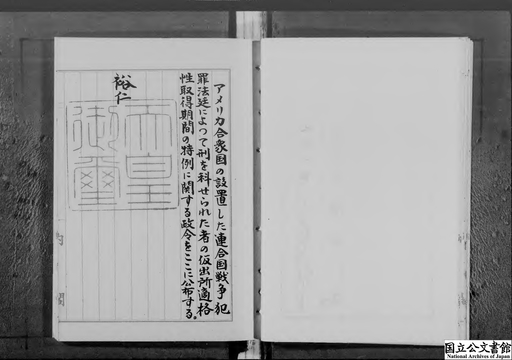 アメリカ合衆国の設置した連合国戦争犯
罪法廷によつて刑を科せられた者の仮出所適格
性取得期間の特例に関する政令をここに公布する。
裕仁
天皇
御璽
国立公文書館
National Archives of Japan